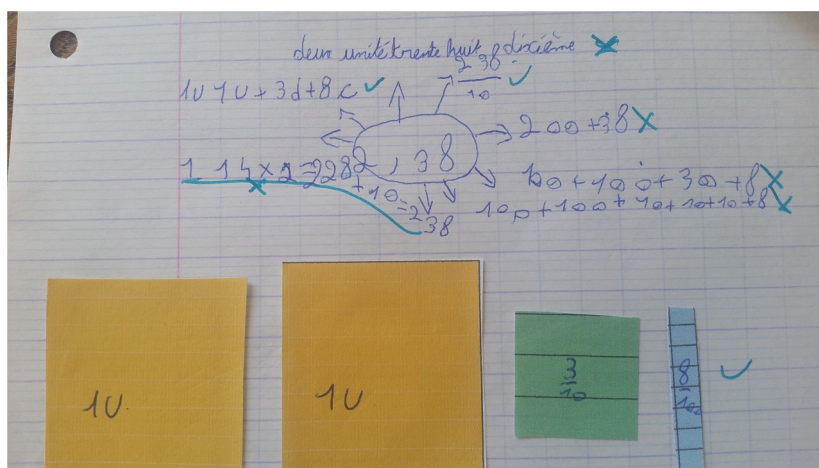 deux unité trente huit dixième
1u 1u + 3d + 8c
238/10
200 + 38
2,38
1 14 × 2 = 228
+ 10
= 238
100 + 100 + 30 + 8
100 + 100 + 10 + 10 + 10 + 8
1U.
1U
3/10
8/100